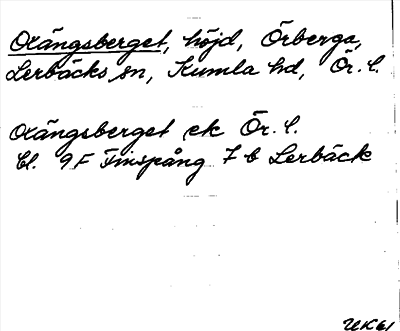 Oxängsberget, höjd, Örberga,
Lerbäcks sn, Kumla hd, Ör. l.
Oxängsberget ek Ör. l.
bl. 9F Finspång 7 b Lerbäck
UK61